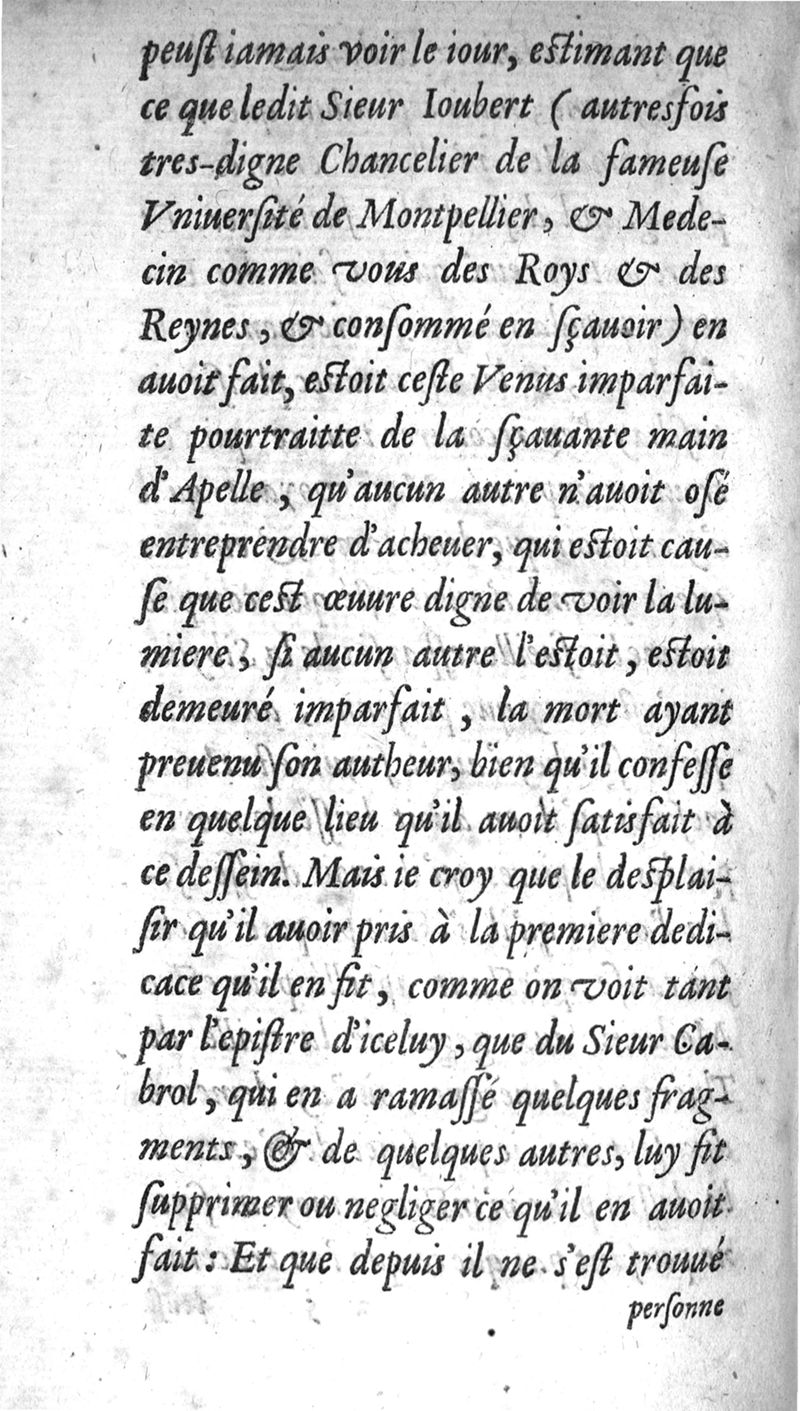 peuſt iamais voir le iour, eſtimant que
ce que ledit Sieur Ioubert ( autresfois
tres-digne Chancelier de la fameuſe
Vniuerſité de Montpellier, & Mede-
cin comme vous des Roys & des
Reynes, & conſommé en ſçauoir) en
auoit fait, eſtoit ceſte Venus imparfai-
te pourtraitte de la ſçauante main
d'Apelle, qu'aucun autre n'auoit oſé
entreprendre d'acheuer, qui eſtoit cau-
ſe que ceſt œuure digne de voir la lu-
miere, ſi aucun autre l'eſtoit, eſtoit
demeuré imparfait, la mort ayant
preuenu ſon autheur, bien qu'il confeſſe
en quelque lieu qu'il auoit ſatisfait à
ce deſſein. Mais ie croy que le deſplai-
ſir qu'il auoir pris à la premiere dedi-
cace qu'il en fit, comme on voit tant
par l'epiſtre d'iceluy, que du Sieur Ca-
brol, qui en a ramaſſé quelques frag-
ments, & de quelques autres, luy fit
ſupprimer ou negliger ce qu'il en auoit
fait : Et que depuis il ne s'eſt trouué
perſonne